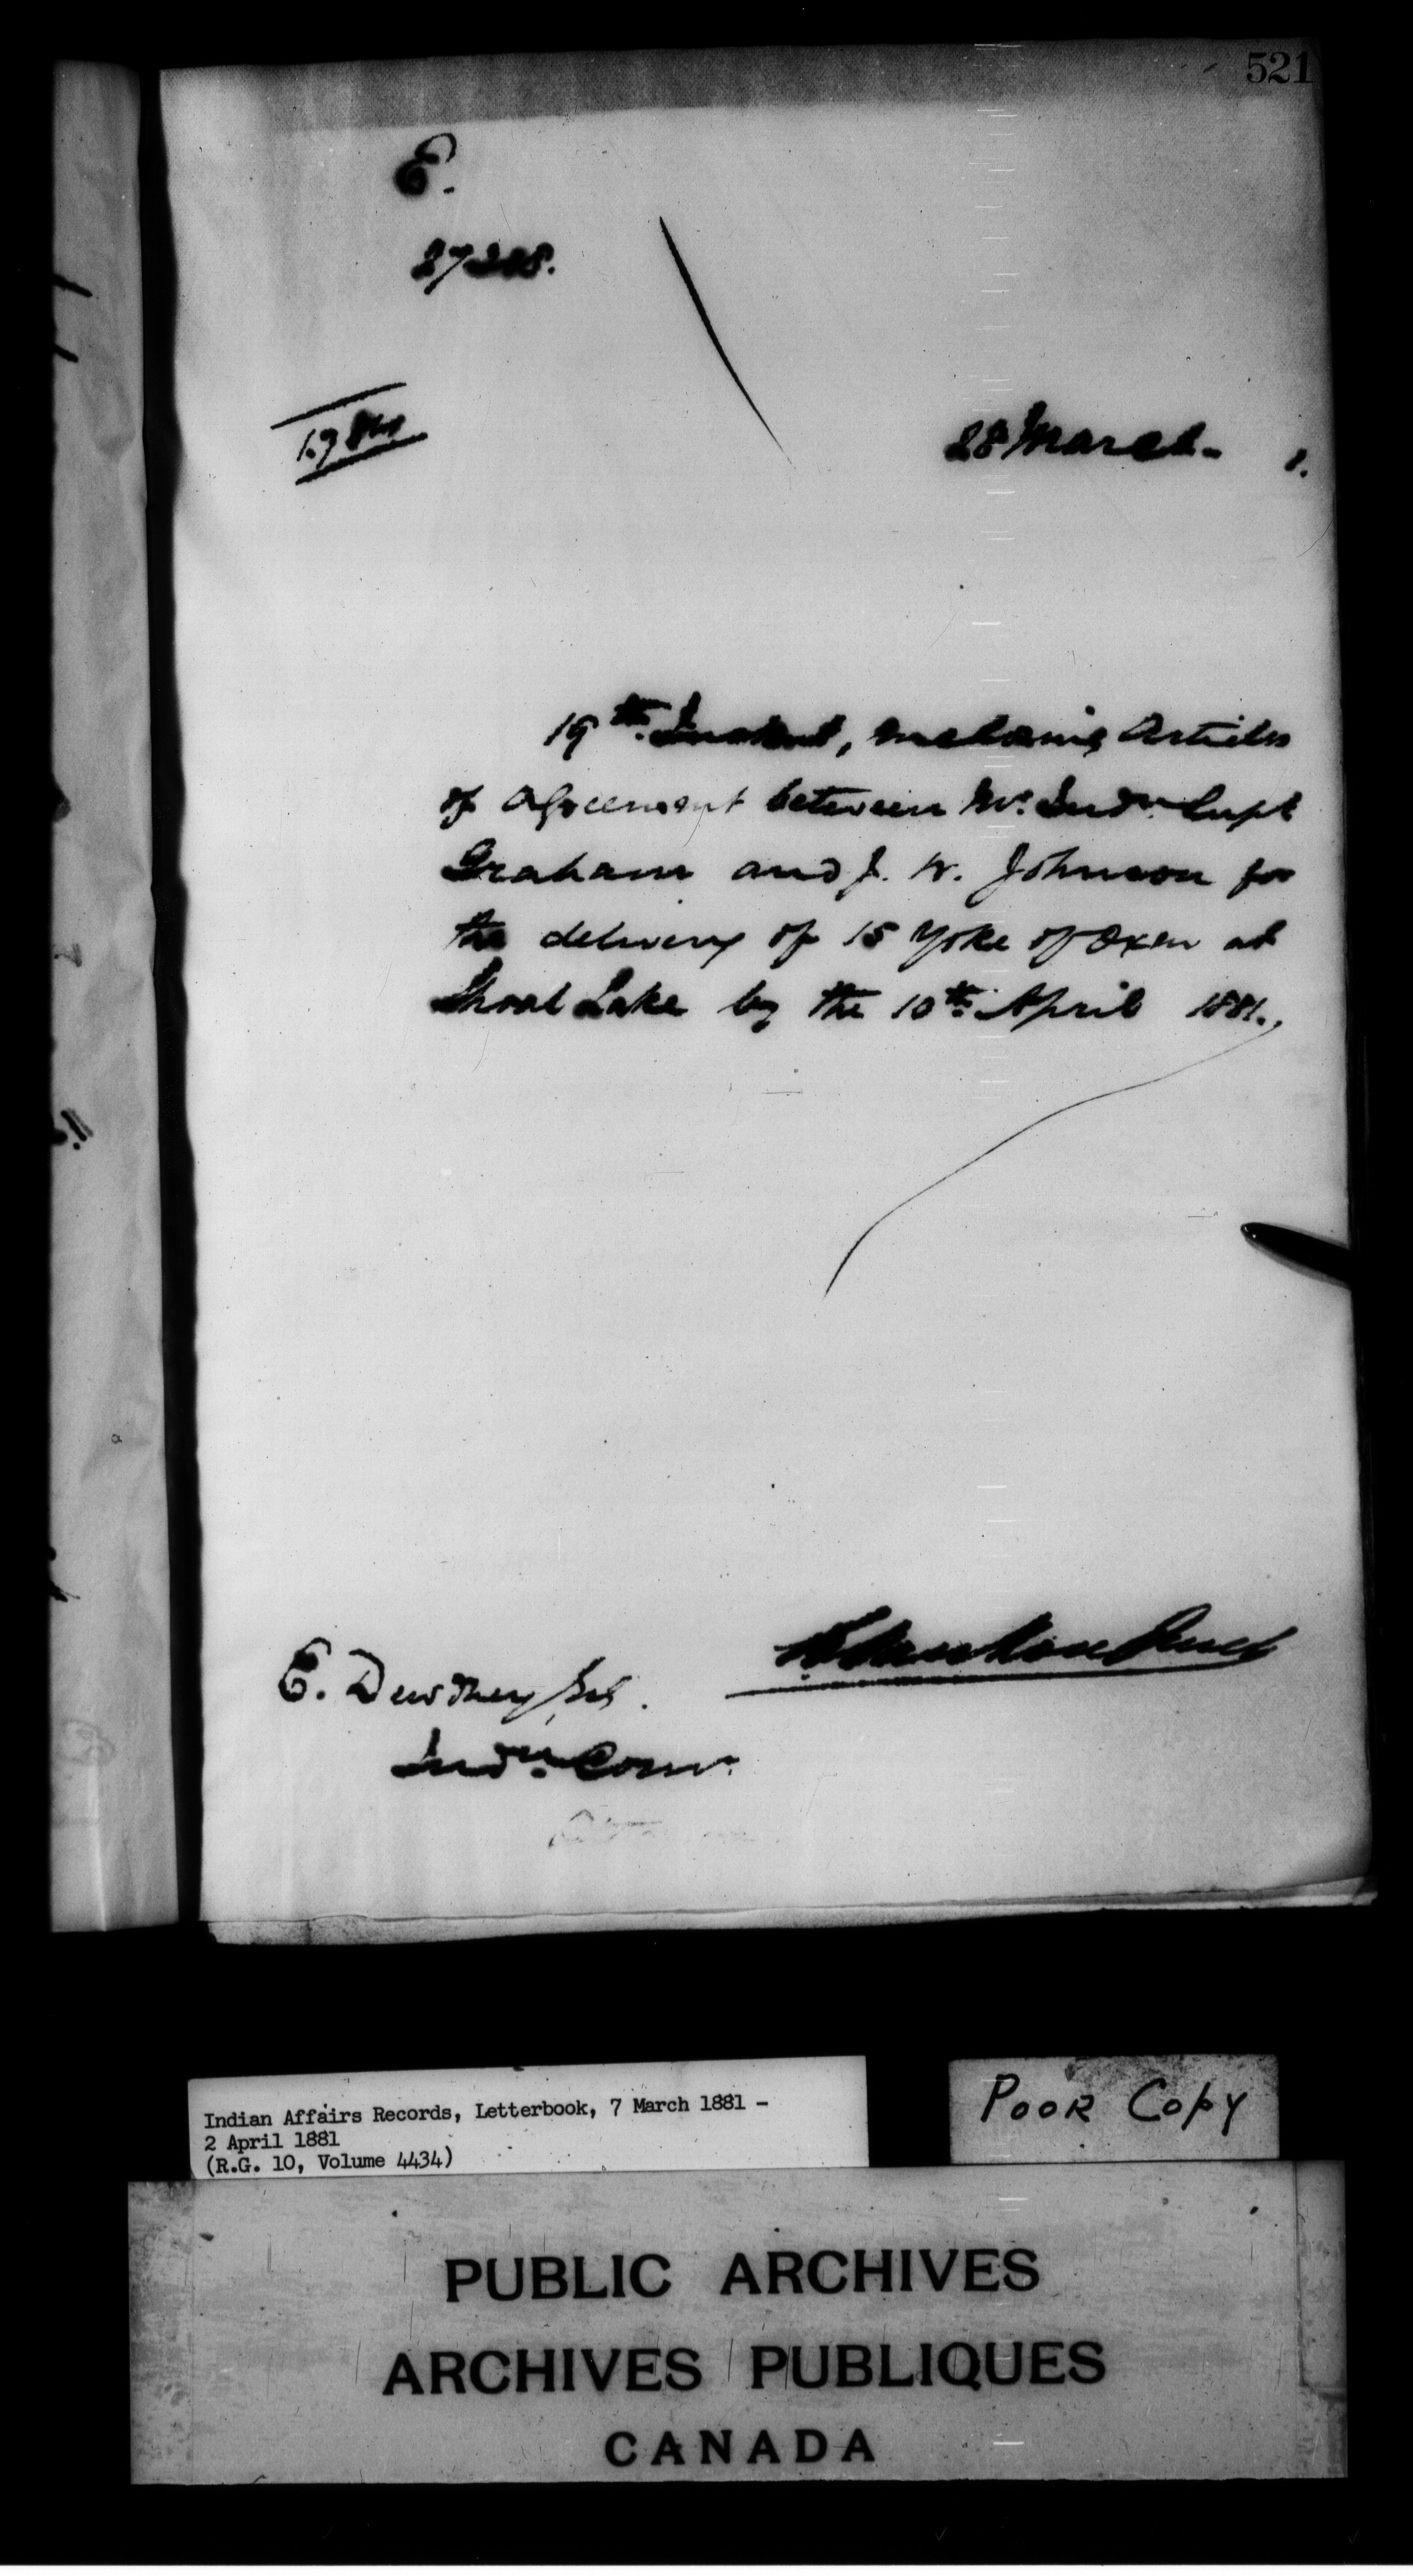 521
E.
28 March. 1.
19th Instant, enclosing Articles
of Agreement between Mr. Indn. Supt
Graham and J. W. Johnson for
the delivery of 15 Yoke of Oxen at
Shoal Lake by the 10th April 1881.
E. Dewdney, Esq.
Indn. Comr.
Indian Affairs Records, Letterbook, 7 March 1881 -
2 April 1881
(R.G. 10, Volume 4434)
POOR COPY
PUBLIC ARCHIVES
ARCHIVES PUBLIQUES
CANADA